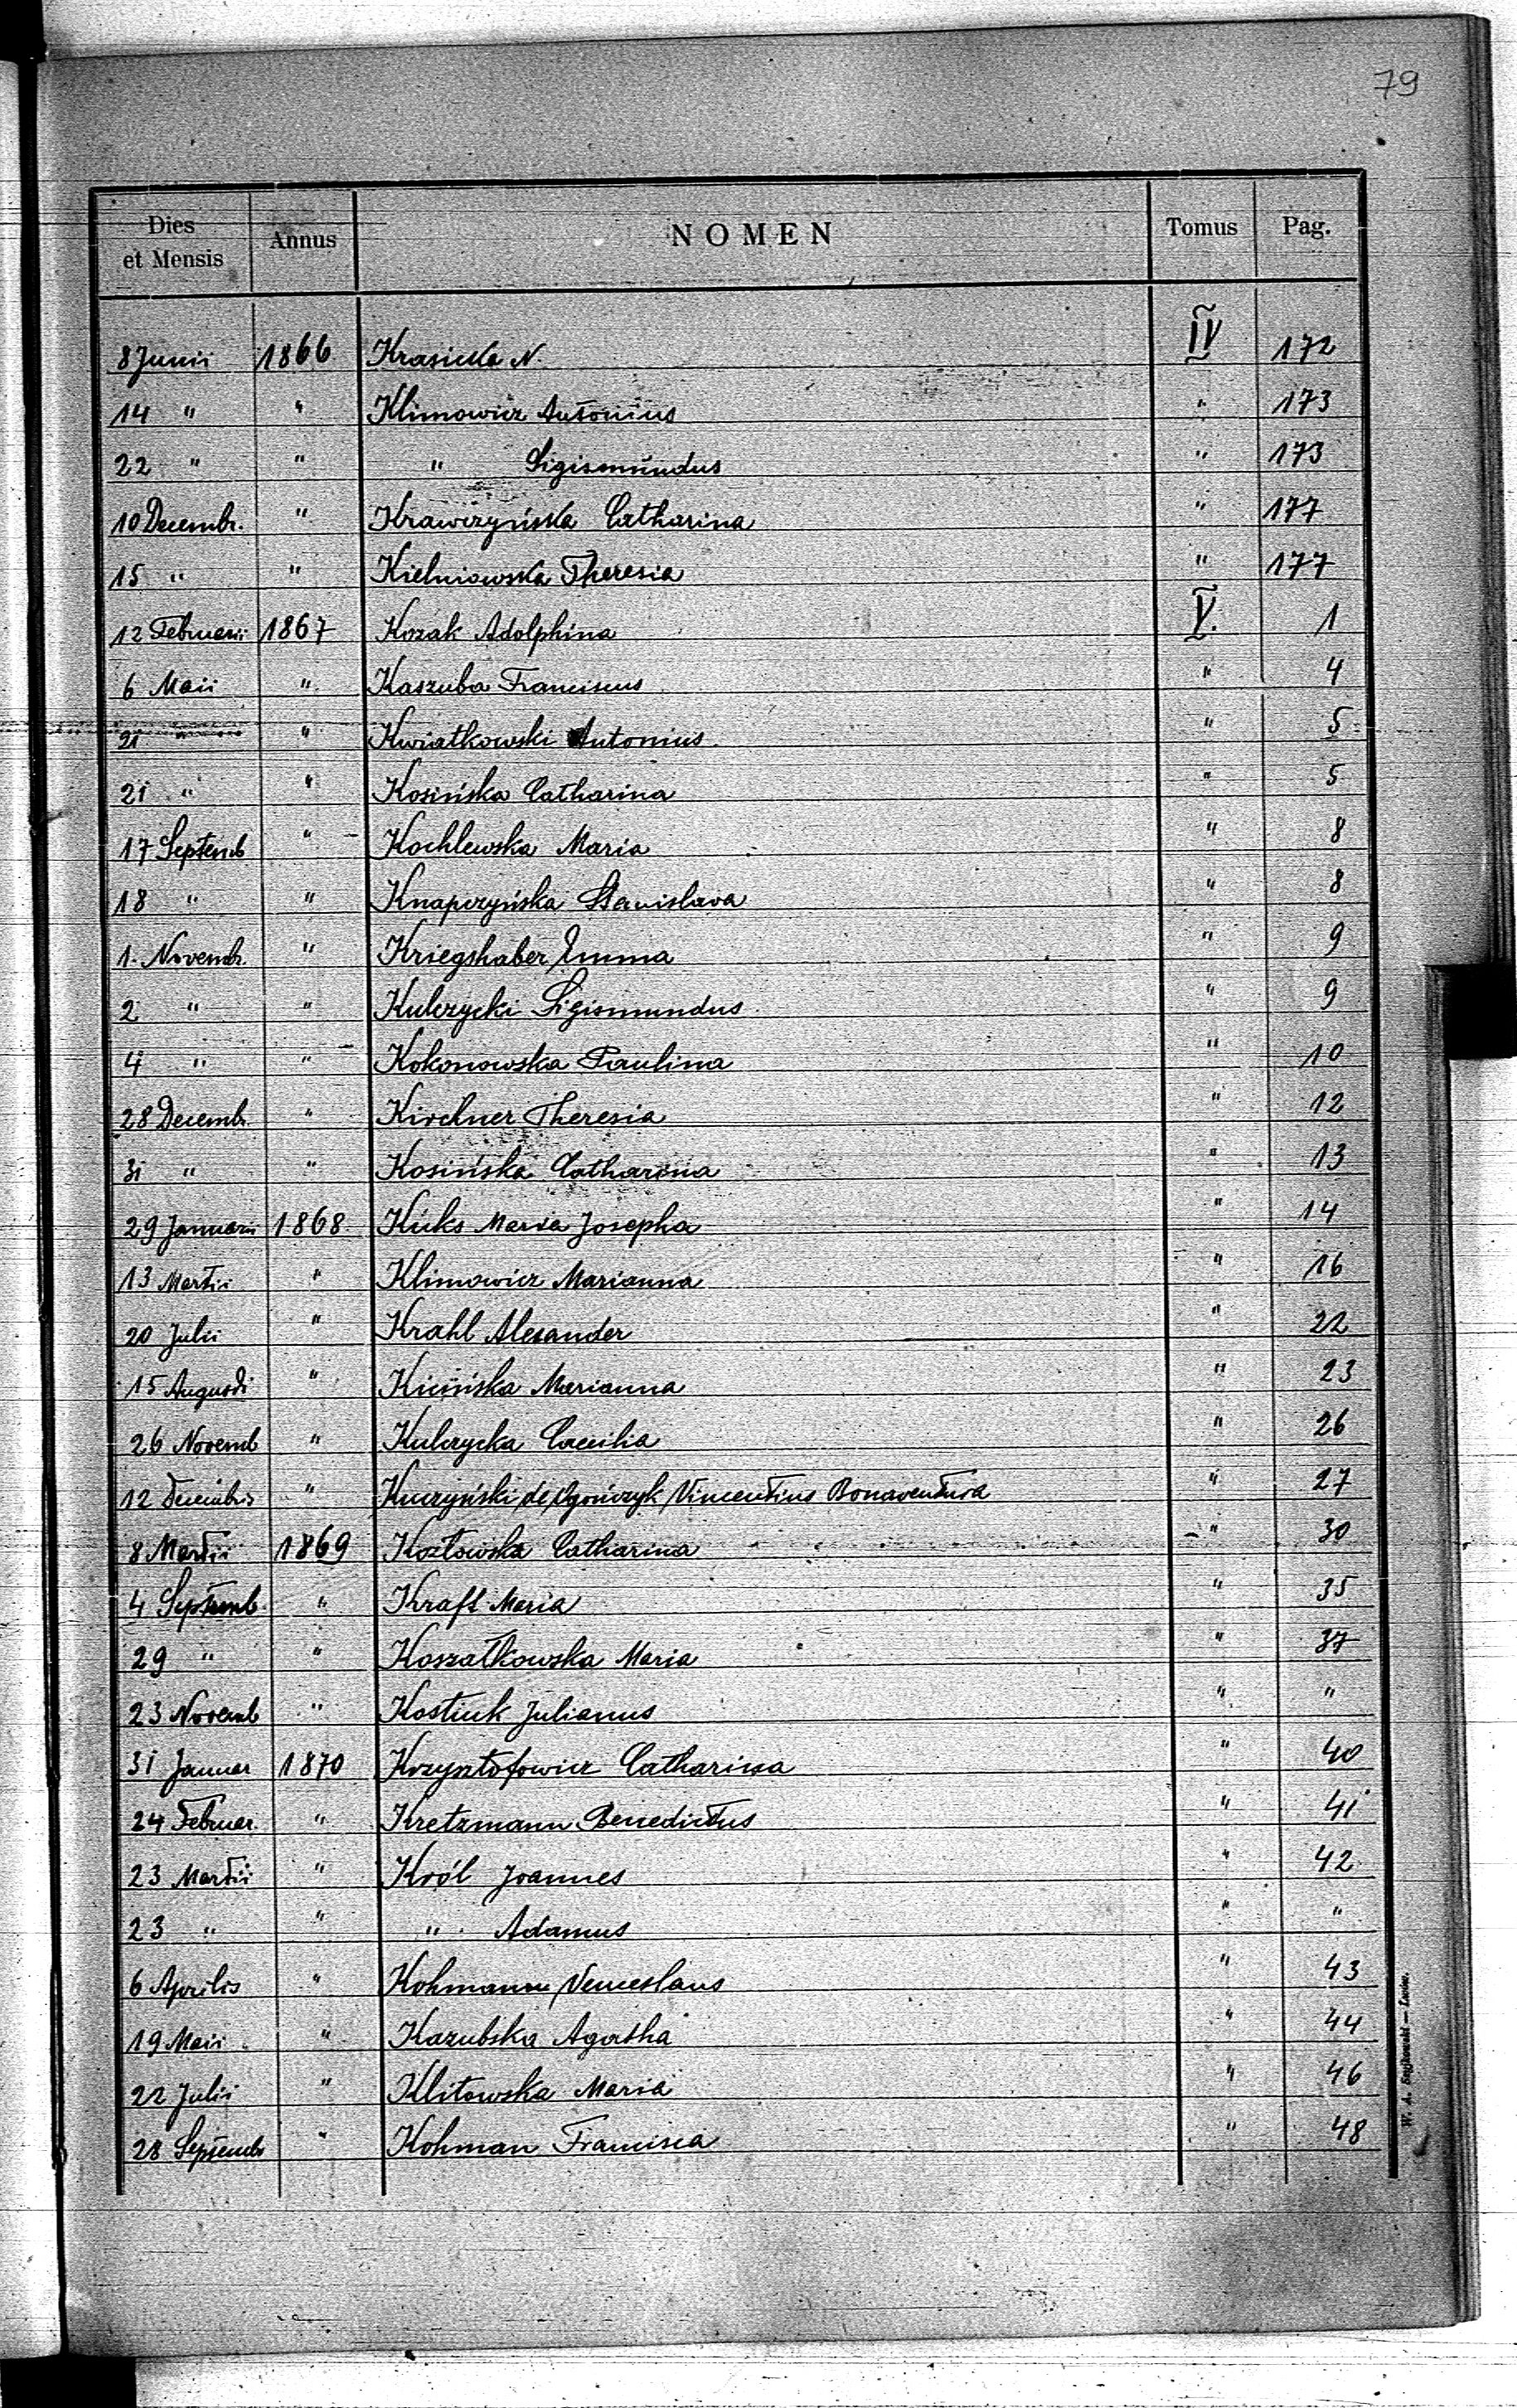 79
Dies et Mensis Annus NOMEN Tomus Pag.
8 Junii 1866 Krasicka N. IV 172
14 " " Klimowicz Antonius " 173
22 " " " Sigismundus " 173
10 Decembr. " Krawczyńska Catharina " 177
15 " " Kielniowska Theresia " 177
12 Februarii 1867 Kozak Adolphina V. 1
6 Maii " Kaszuba Franciscus " 4
21 " Kwiatkowski Antonius " 5
21 " " Kosińska Catharina " 5
17 Septemb " Kochlewska Maria " 8
18 " " Knapczyńska Stanislava " 8
1. Novembr. " Kriegshaber Emma " 9
2 " " Kulczycki Sigismundus " 9
4 " " Kokonowska Paulina " 10
28 Decembr. " Kirchner Theresia " 12
31 " " Kosińska Catharina " 13
29 Januarii 1868 Kuks Maria Josepha " 14
13 Martii " Klimowicz Marianna " 16
20 Julii " Krahl Alexander " 22
15 Augusti " Kicińska Marianna " 23
26 Novemb " Kulczycka Caecilia " 26
12 Decembris " Kuczyński de Ogończyk Vincentius Bonaventura " 27
8 Martii 1869 Kozłowska Catharina " 30
4 Septemb. " Kraft Maria " 35
29 " " Koszałkowska Maria " 37
23 Novemb " Kostiuk Julianus " "
31 Januar 1870 Krzysztofowicz Catharina " 40
24 Februar. " Kretzmann Benedictus " 41
23 Martii " Król Joannes " 42
23 " " " Adamus " "
6 Aprilis " Kohmann Venceslaus " 43
19 Maii " Kazubska Agatha " 44
22 Julii " Klitowska Maria " 46
28 Septembr " Kohman Francisca " 48
W. A. — Lwów.